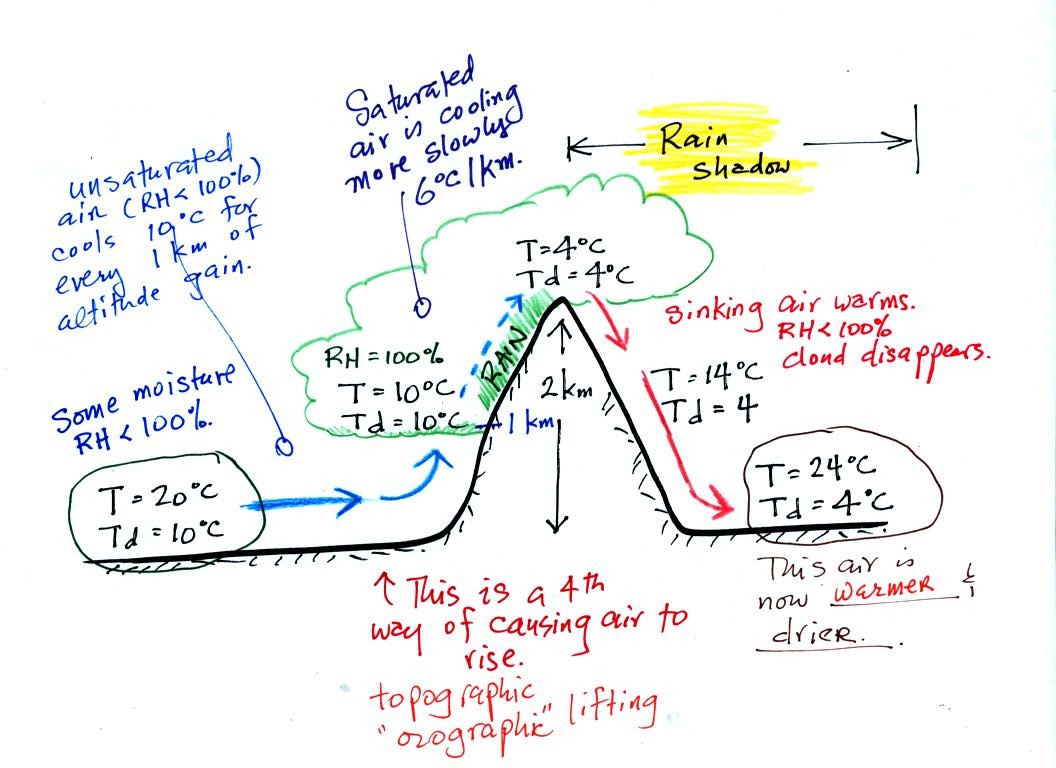 Saturated
air is cooling
more slowly
6°C/km.
unsaturated
air (RH < 100%)
cools 10°C for
every 1 km of
altitude gain.
Rain
shadow
T=4°C
Td = 4°C
sinking air warms.
RH < 100%
cloud disappears.
RAIN
RH = 100%
T = 10°C
Td = 10°C
1 km
2 km
T = 14°C
Td = 4
Some moisture
RH < 100%.
T = 20°C
Td = 10°C
T = 24°C
Td = 4°C
This air is
now warmer &
drier.
↑ This is a 4th
way of causing air to
rise.
topographic
"orographic" lifting